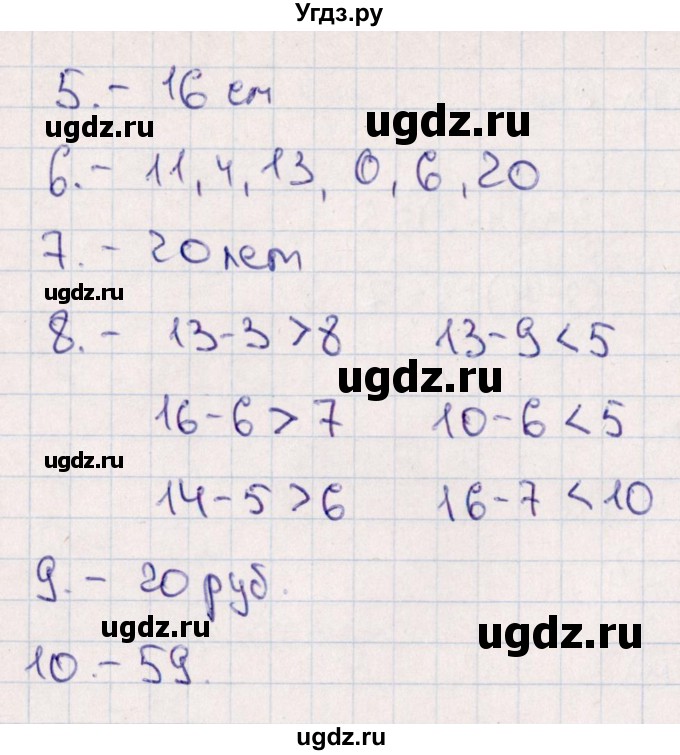 Угдз.ру
5. - 16 см
ugdz.ru
ugdz.ru
6. - 11, 4, 13, 0, 6, 20
7. - 20 лет
ugdz.ru
8. - 13-3>8 13-9<5
ugdz.ru
16-6>7 10-6<5
ugdz.ru
14-5>6 16-7<10
9. - 20 руб.
ugdz.ru
ugdz.ru
10. - 59.
ugdz.ru